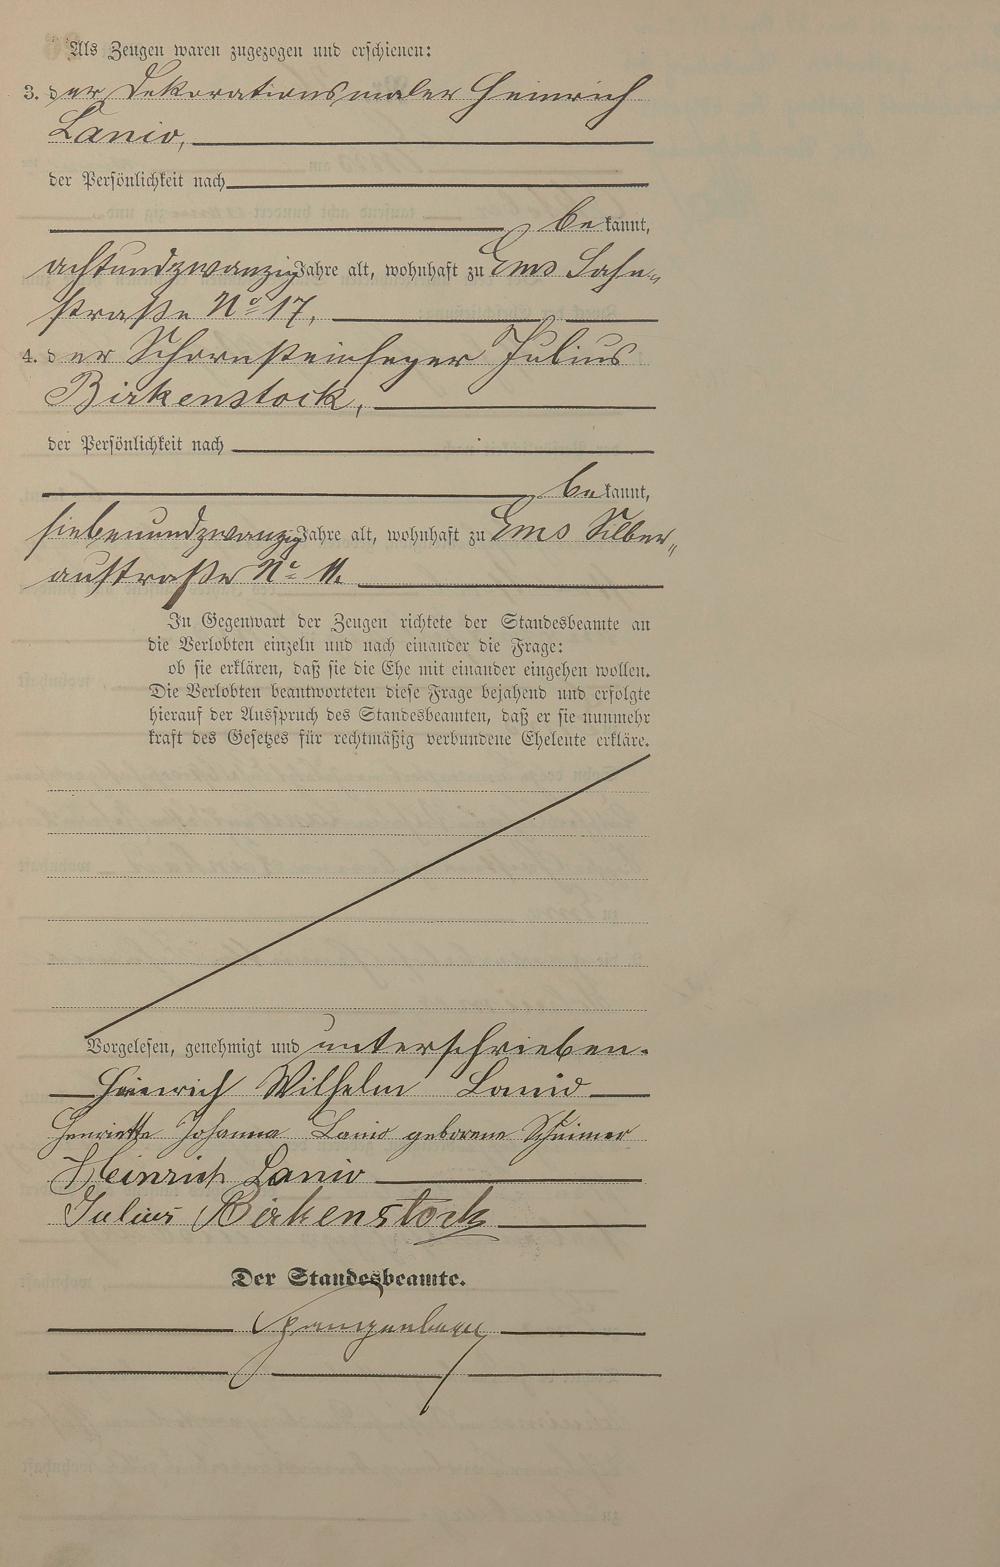 Als Zeugen waren zugezogen und erschienen:
3. der Dekorationsmaler Heinrich
Lanio,
der Persönlichkeit nach
bekannt,
achtundzwanzig Jahre alt, wohnhaft zu Ems Lahn-
straße No 17,
4. der Schornsteinfeger Julius
Birkenstock,
der Persönlichkeit nach
bekannt,
siebenundzwanzig Jahre alt, wohnhaft zu Ems Silber„
austraße No 11.
In Gegenwart der Zeugen richtete der Standesbeamte an
die Verlobten einzeln und nach einander die Frage:
ob sie erklären, daß sie die Ehe mit einander eingehen wollen.
Die Verlobten beantworteten diese Frage bejahend und erfolgte
hierauf der Ausspruch des Standesbeamten, daß er sie nunmehr
kraft des Gesetzes für rechtmäßig verbundene Eheleute erkläre.
Vorgelesen, genehmigt und unterschrieben.
Heinrich Wilhelm Lanio
Henriette Johanna Lanio geborene
Heinrich Lanio
Julius Birkenstock
Der Standesbeamte.